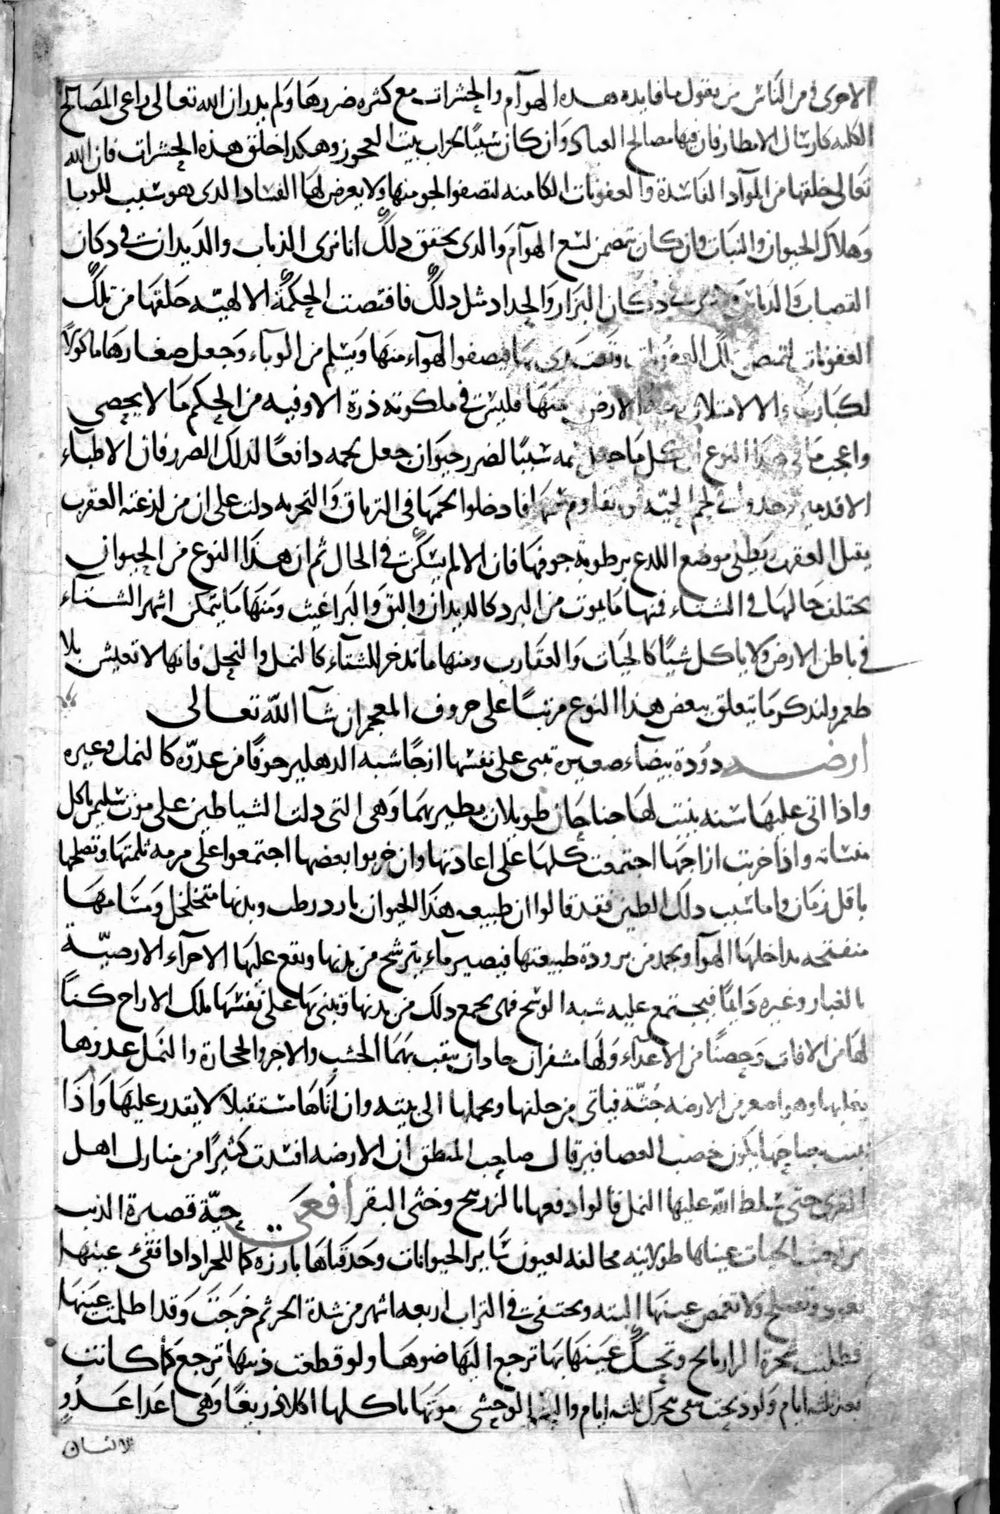 الاخرى فمن الناس من يقول ما فايده هذه الهوآم والحشرات مع كثره ضررها ولم يدر ان الله تعالى يراعى المصالح
الكليه كارسال الامطار فان فيها مصالح العباد وان كان سببًا لخراب بيت العجوز وهكذا خلق هذه الحشرات فان الله
تعالى خلقها من الموآد الفاسدة والعفونات الكامنه لتصفو الجو منها ولا يعرض لها الفساد الذى هو سبب للوبا
وهلاك الحيوان والنبات وان كان يتضمن لسع الهوآم والذى يحقق ذلك انا نرى الذباب والديدان فى دكان
القصاب والدباس ولا نرى فى دكان البزار والحداد مثل ذلك فاقتضت الحكمة الالهيه خلقها من تلك
العفونات لتمص تلك العفونات فيصفو الهوآء منها ويسلم من الوبآء وجعل صغارها ماكولا
لكبارها والا لامتلات منها الارض فليس فى ملكوته ذرة الا وفيه من الحكم ما لا يحصى
واعجب ما فى هذا النوع ان كل ما جعل سمه سببًا لضرر حيوان جعل لحمه دافعًا لذلك الضرر فان الاطباء
الاقدمين وجدوا فى لحم الحيه ان يقاوم سمها فادخلوا لحمها فى الترياق والتجربه دلت على ان من لدغته العقرب
يقتل العقرب ويطلى موضع اللدغ برطوبة جوفها فان الالم يسكن فى الحال ثم ان هذا النوع من الحيوان
يختلف حالها فى الشتاء فمنها ما يموت من البرد كالديدان والبق والبراغيث ومنها ما يتمكن اشهر الشتآء
فى باطن الارض ولا ياكل شيًا كالحيات والعقارب ومنها ما تدخر للشتآء كالنمل والنحل فانها لا تعيش بلا
طعم ولنذكر ما يتعلق ببعض هذا النوع مرتبًا على حروف المعجم ان شآ الله تعالى
ارضه دودة بيضآء صغيره تبنى على نفسها ازجًا شبه الدهليز خوفًا من عدوه كالنمل وغيره
واذا اتى عليها سنه ينبت لها جناحان طويلان يطير بهما وهى التى دلت الشياطين على موت سليمن باكل
منساته واذا خربت ازاجها اجتمعت كلها على اعادتها وان خربوا بعضها اجتمعوا على مرمه ثلمتها وتصلحها
باقل زمان واما سبب ذلك الطين فقد قالوا ان طبيعه هذا الحيوان بارد رطب وبدنها متخلخل ومسامها
منفتحه يداخلها الهوآ ويجمد من برودة طبيعتها فيصير مآء يترشح من بدنها وتقع عليها الاجزآء الارضيّة
بالغبار وغيره دايمًا فيجتمع عليه شبه الوسخ فهى تجمع ذلك من بدنها وتبنى بها على نفسها تلك الازاج كنًا
لها من الافات وحصنًا من الاعدآء ولها مشفران حادان ينقب بهما الخشب والاجر والحجارة والنمل عدوها
وهو اصغر من الارضه جثّة فياتى من خلفها ويحملها الى بيته وان اتاها مستقبلًا لا يقدر عليها واذا
نبت جناحها يكون خصب العصافير قال صاحب المنطق ان الارضه افسدت كثيرًا من منازل اهل
القرى حتى سلط الله عليها النمل قالوا دفعها بالزرنيخ وخثى البقر افعى حيّة قصيرة الذنب
من اخبث الحيات عيناها طولانيه مخالفه لعيون ساير الحيوانات وحدقتاها بارزه كما للجراد اذا فقىء عينها
تعود ولا تغمض عينها البته وتختفى فى التراب اربعه اشهر من شدة الحر ثم خرجت وقد اظلمت عينها
فطلبت شجرة الرازيانج وتحك عينها بها ترجع اليها ضوها ولو قطعت ذنبها ترجع كما كانت
بعد ثلثه ايام ولو ذبحت تبقى تتحرك ثلثه ايام والبقر الوحشى ياكلها اكلا ذريعًا وهى اعدا عدو
الانسان